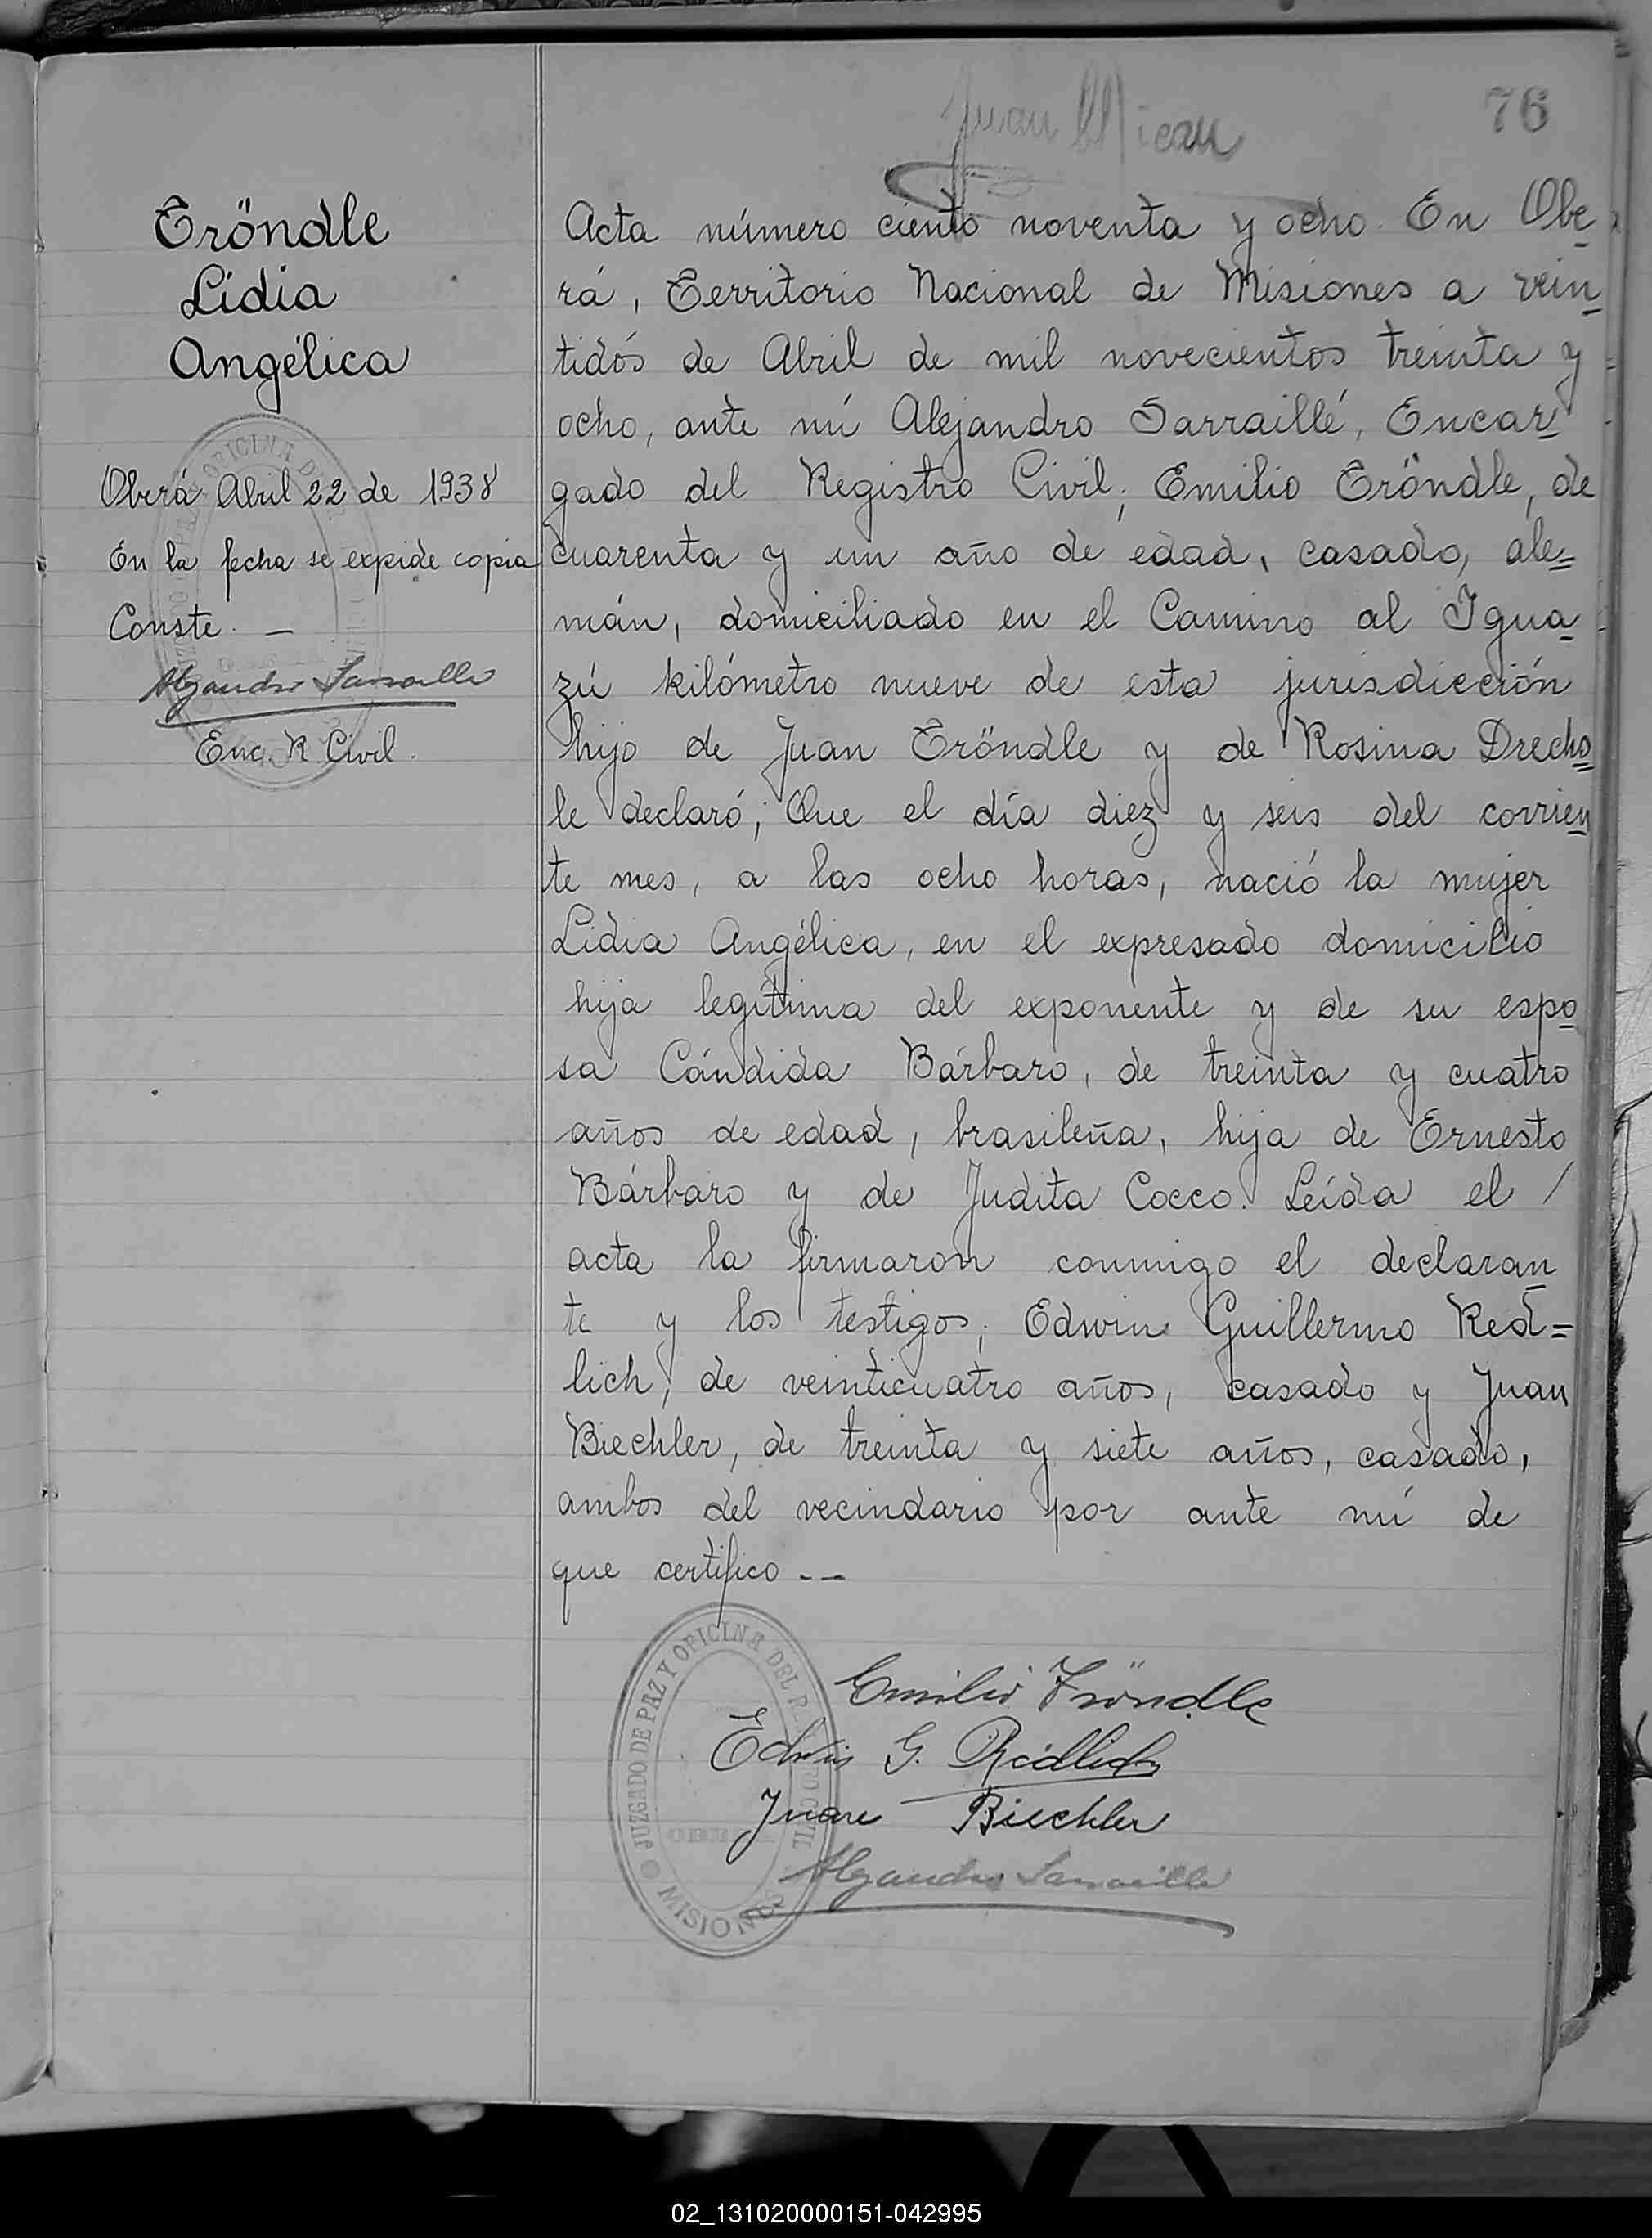 76
Tröndle
Lidia
Angélica
Oberá Abril 22 de 1938
En la fecha se expide copia
Conste. —
Alejandro Sarraillé
Enc. R Civil.
Acta número ciento noventa y ocho. En Obe
rá, Territorio Nacional de Misiones a vein
tidós de Abril de mil novecientos treinta y
ocho, ante mí Alejandro Sarraillé, Encar
gado del Registro Civil; Emilio Tröndle, de
cuarenta y un año de edad, casado, ale=
mán, domiciliado en el Camino al Igua
zú kilómetro nueve de esta jurisdicción
hijo de Juan Tröndle y de Rosina Drechs
le declaró; Que el día diez y seis del corrien
te mes, a las ocho horas, nació la mujer
Lidia Angélica, en el expresado domicilio
hija legítima del exponente y de su espo
sa Cándida Bárbaro, de treinta y cuatro
años de edad, brasileña, hija de Ernesto
Bárbaro y de Judita Cocco. Leída el /
acta la firmaron conmigo el declaran
te y los testigos; Edwin Guillermo Red=
lich, de veinticuatro años, casado y Juan
Biechler, de treinta y siete años, casado,
ambos del vecindario por ante mí de
que certifico --
JUZGADO DE PAZ Y OFICINA DEL REGISTRO CIVIL
OBERÁ
MISIONES
Emilio Tröndle
Edwin G. Redlich
Juan Biechler
Alejandro Sarraillé
02_131020000151-042995